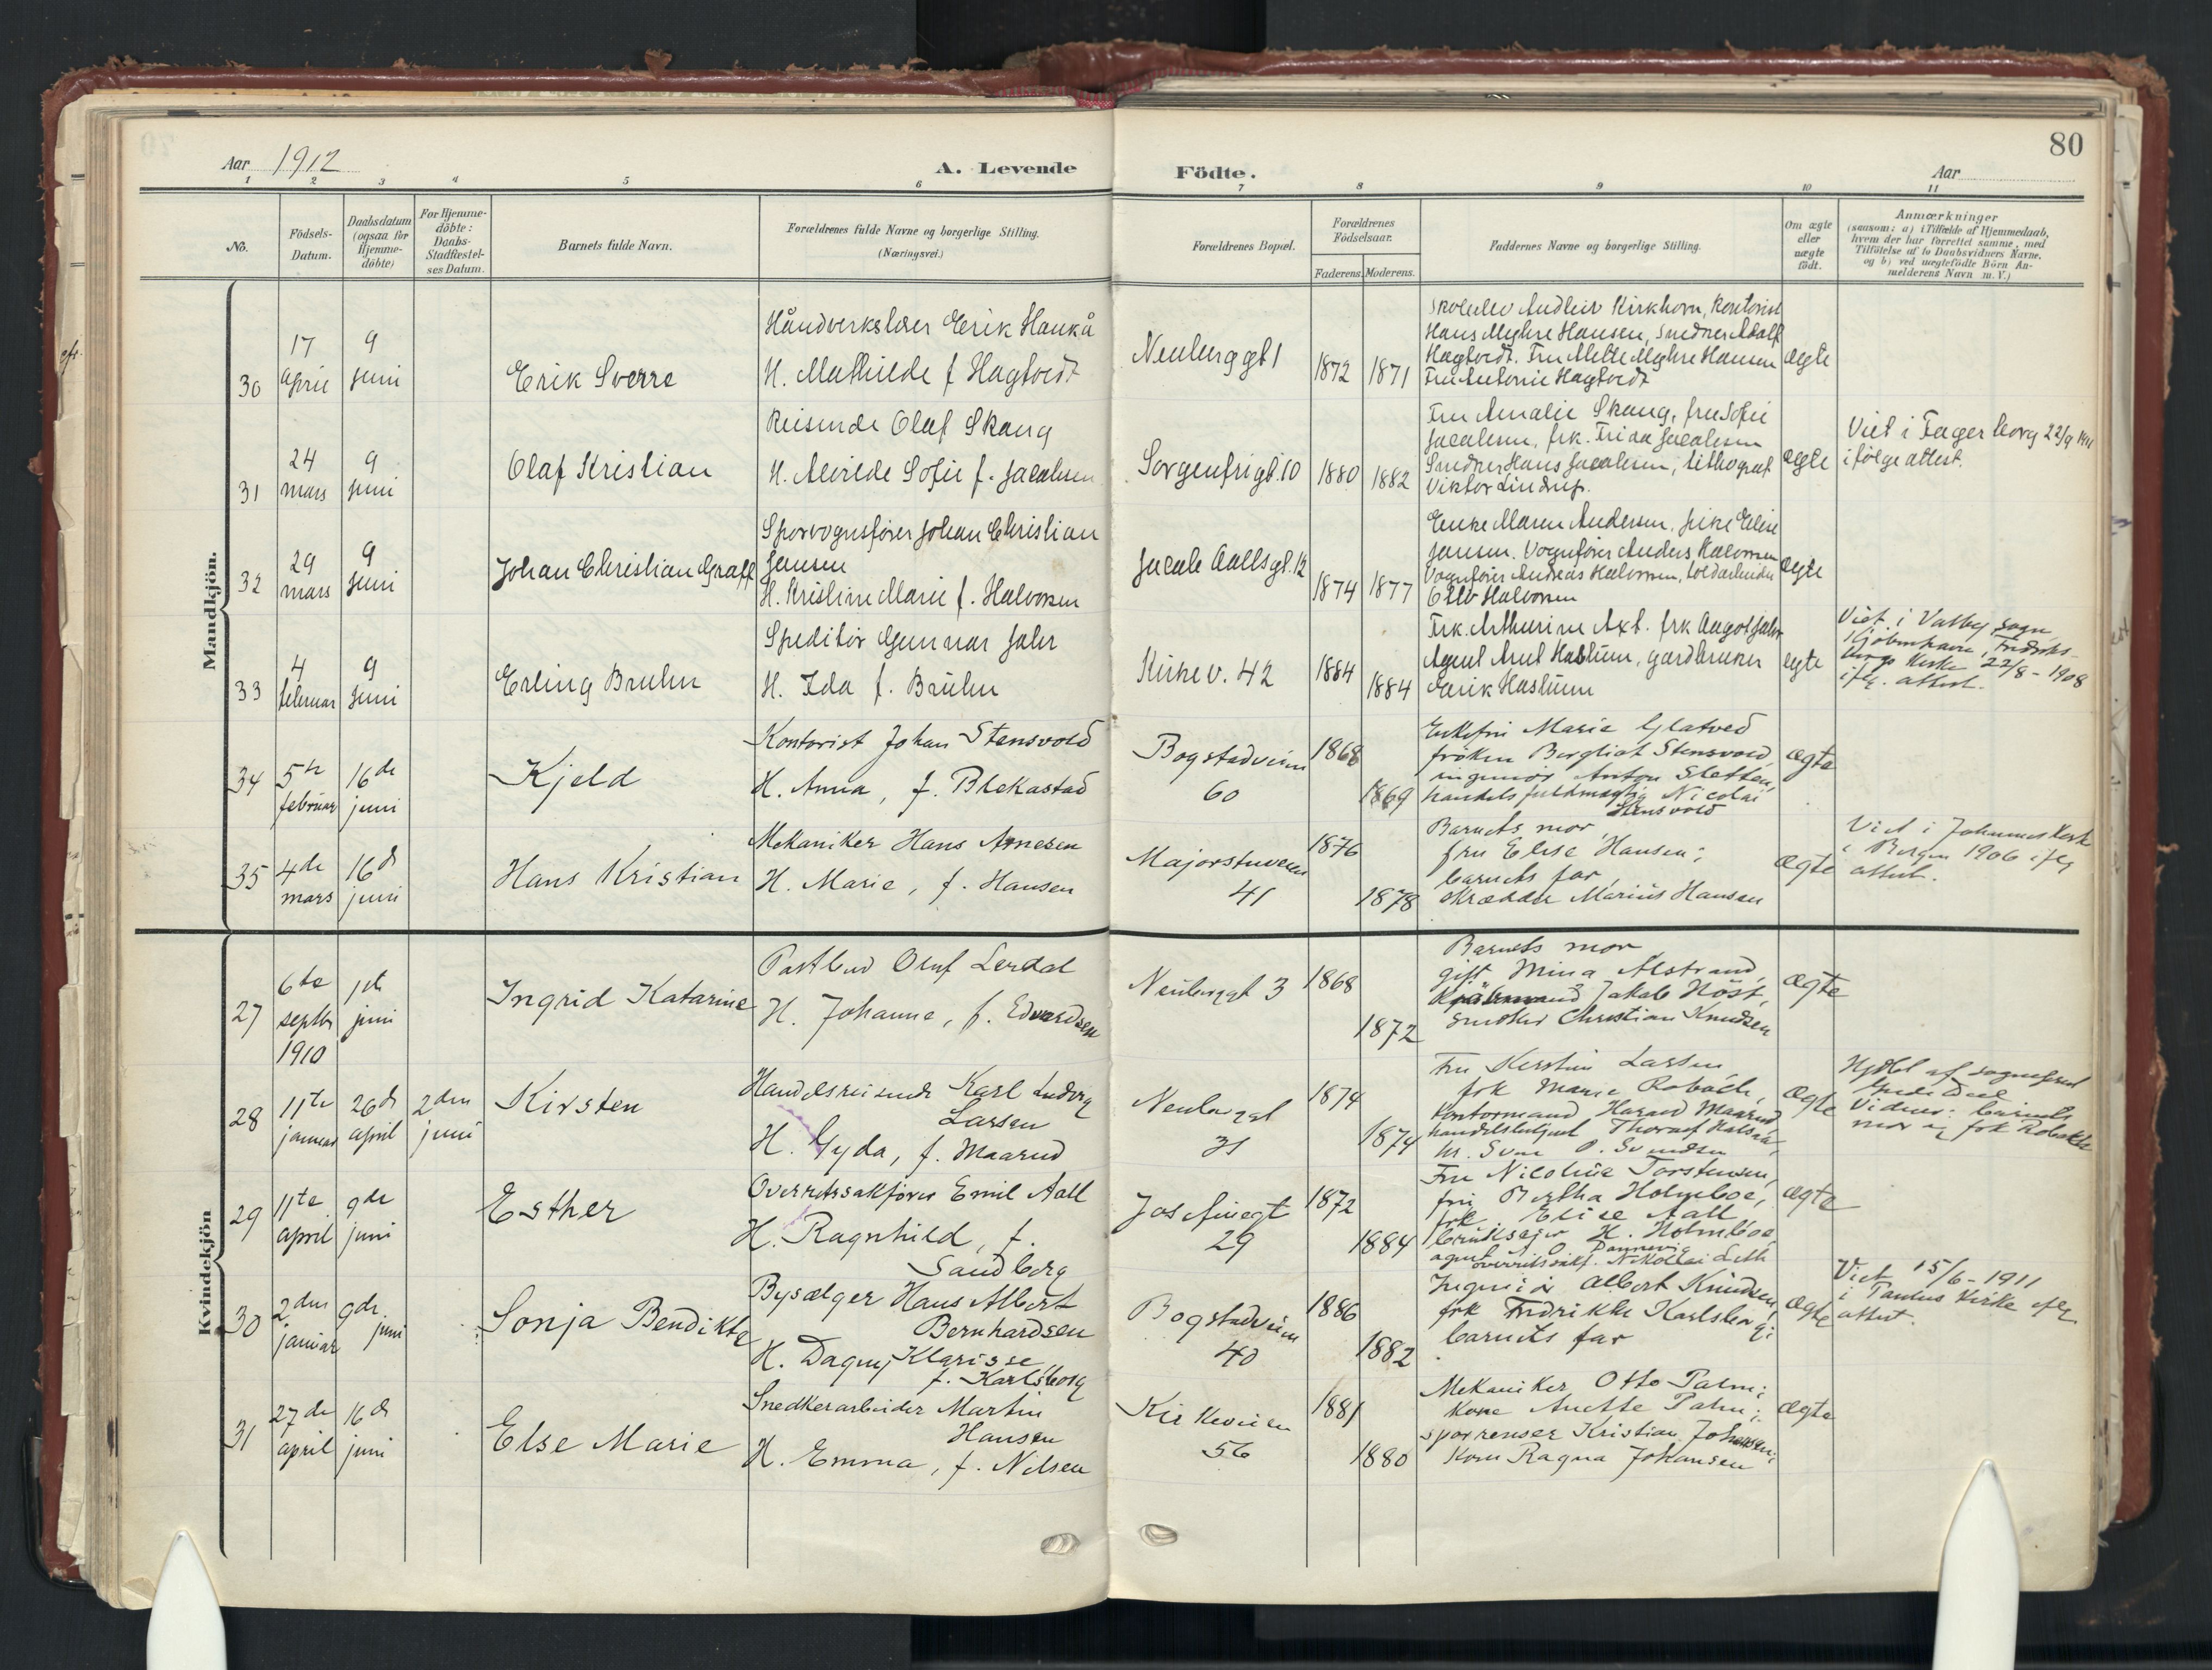 80
Aar 1912
A. Levende
Födte.
Aar
1 2 3 4 5 6 7 8 9 10 11
No.
Födsels-
Datum.
Daabsdatum
(ogsaa for
Hjemme-
döbte)
For Hjemme-
döbte:
Daabs-
Stadfæstel-
ses Datum.
Barnets fulde Navn.
Forældrenes fulde Navne og borgerlige Stilling.
(Næringsvei.)
Forældrenes Bopæl.
Forældrenes
Födselsaar.
Faderens. Moderens.
Faddernes Navne og borgerlige Stilling.
Om ægte
eller
uægte
födt.
Anmærkninger
(saasom: a) i Tilfælde af Hjemmedaab,
hvem der har forrettet samme, med
Tilföielse af to Daabsvidners Navne,
og b) ved uægtefödte Börn An-
melderens Navn m. V.)
Mandkjön.
30
17
april
9
juni
Erik Sverre
Håndverkslærer Erik Haukå
H. Mathilde f Hagtvedt
Neuberggt 1
1872
1871
Kirkhorn, kontorist
Hans Myhre Hansen, Snedker Adolf
Hagtvedt. Fru Mette Myhre Hansen
Fru Antonie Hagtvedt
ægte
31
24
mars
9
juni
Olaf Kristian
Reisende Olaf Skaug
H. Alvilde Sofie f. Jacobsen
Sorgenfrigt. 10
1880
1882
Fru Amalie Skaug, fru Sofie
Jacobsen, frk. Frida Jacobsen
Snedker Hans Jacobsen, lithograf
Viktor Lindrup.
ægte
Viet i Fagerborg 22/9 1911
ifølge attest.
32
29
mars
9
juni
Johan Christian Graff
Sporvognsfører Johan Christian
Jansen
H. Kristine Marie f. Halvorsen
Jacob Aallsgt. 12
1874
1877
Enke Maren Andersen, pike Eline
Jansen. Vognfører Anders Halvorsen
Vognfører Andreas Halvorsen, toldarbeider
Halvorsen
ægte
33
4
februar
9
juni
Erling Bruhn
Speditør Gunnar Jahr
H. Ida f. Brühn
Kirkev. 42
1884
1884
Frk. Arthurine Axt. frk Aagot Jahr
Agent Arnt Haslum, gårdbruker
Haslum
ægte
Viet i Valby sogn
Kjøbenhavn, Fredriks-
bergs Kirke 22/8 - 1908
ifлg. attest.
34
5te
februar
16de
juni
Kjeld
Kontorist Johan Stensvold
H. Anna, f. Blekastad
Bogstadveien
60
1868
1869
Enkefru Marie Glatved
frøken Bergliot Stensvold,
ingeniør Anton Sletten,
handelsfuldmægtig Nicolai
Stensvold
ægte
35
4de
mars
16de
juni
Hans Kristian
Mekaniker Hans Arnesen
H. Marie, f. Hansen
Majorstuveien
41
1876
1878
Barnets mor,
fru Elise Hansen;
barnets far,
skrædder Marius Hansen
ægte
Viet i Johannes Kirke
i Bergen 1906 iflg
attest.
Kvindekjön
27
6te
septbr
1910
1ste
juni
Ingrid Katarine
Postbud Oluf Lerdal
H. Johanne, f. Edvardsen
Neuberggt 3
1868
1872
Barnets mor
gift Mina Alstrand,
Jakob Höst,
snedker Christian Knudsen
ægte
28
11te
januar
26de
april
2den
juni
Kirsten
Handelsreisende Karl Ludvig
Larsen
H. Gyda, f. Maarud
Neuberggt
31
1874
1874
Fru Kerstin Larsen,
frk Marie
kontormand Harald Maarud
handelsbetjent Thoralf
hr. Sven O. Svendsen
ægte
Hjdbt af sogneprest
Vidner: barnets
mor og frk
29
11te
april
9de
juni
Esther
Overretssakfører Emil Aall
H. Ragnhild, f.
Sandberg
Josefinegt
29
1872
1884
Fru Nicoline Torstensen,
fru Bertha Holmboe,
frk Elise Aall
bruksejer H. Holmboe
agent O. Dannevig
overretssakf. Nikolai Leth
ægte
30
2den
januar
9de
juni
Sonja Bendikte
Bysælger Hans Albert
Bernhardsen
H. Dagny Klarisse
f. Karlsborg
Bogstadveien
40
1886
1882
Ingeniör Albert Knudsen,
frk Fredrikke Karlsborg;
barnets far
ægte
Viet 15/6 - 1911
i Paulus Kirke iflg
attest.
31
27de
april
16de
juni
Else Marie
Snedkerarbeider Martin
Hansen
H. Emma, f. Nilsen
Kirkeveien
56
1881
1880
Mekaniker Otto Palm;
kone Anette Palm;
sporrenser Kristian Johansen;
kone Ragna Johansen
ægte